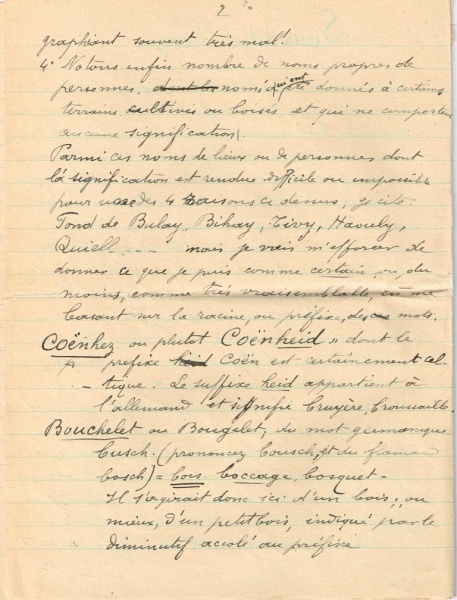 2
graphiant souvent très mal!
4° Notons enfin nombre de noms propres de
personnes, dont les noms qui ont été donnés à certains
terrains cultivés ou boisés, et qui ne comportent
aucune signification.
Parmi ces noms de lieux ou de personnes dont
la signification est rendue difficile ou impossible
pour une des 4 raisons ci dessus, je cite:
Fond de Bilay, Bihay, Tivy, Haouly,
Quiell. - - - mais je vais m'efforcer de
donner ce que je puis comme certain, ou, du
moins, comme très vraisemblable, en me
basant sur la racine, ou préfixe, des mots.
Coënhez ou plutôt Coënheid " dont le
préfixe heid Coën est certainement cel-
- tique. Le suffixe heid appartient à
l'allemand et signifie bruyère, broussaille.
Bouchelet ou Bougelet, du mot germanique
busch. (prononcez bousch, et du flamand
bosch) = bois. boccage, bosquet -
Il s'agirait donc ici d'un bois, ou
mieux, d'un petit bois, indiqué par le
diminutif accolé au préfixe